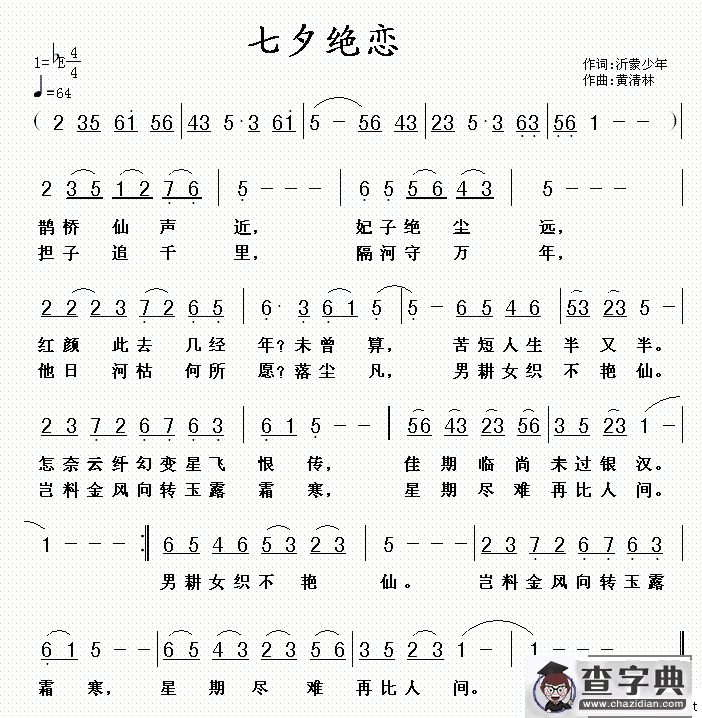 七夕绝恋
1=♭E 4/4
♩=64
作词:沂蒙少年
作曲:黄清林
( 2 35 61 56 | 43 5·3 61 | 5 - 56 43 | 23 5·3 63 | 56 1 - - ) |
2 3 5 1 2 7 6 | 5 - - - | 6 5 5 6 4 3 | 5 - - - |
鹊桥 仙声 近， 妃子绝尘 远，
担子 追千 里， 隔河守万 年，
2 2 2 3 7 2 6 5 | 6· 3 6 1 5 | 5 - 6 5 4 6 | 53 23 5 - |
红颜 此去 几经 年?未曾 算， 苦短人生 半 又 半。
他日 河枯 何所 愿?落尘 凡， 男耕女织 不 艳 仙。
2 3 7 2 6 7 6 3 | 6 1 5 - - | 56 43 23 56 | 3 5 23 1 - |
怎奈云纤幻变星飞 恨 传， 佳 期 临尚 未过银汉。
岂料金风向转玉露 霜 寒， 星 期 尽难 再比人间。
1 - - - :| 6 5 4 6 5 3 2 3 | 5 - - - | 2 3 7 2 6 7 6 3 |
男耕女织不 艳 仙。 岂料金风向转玉露
6 1 5 - - | 5 6 4 3 2 3 5 6 | 3 5 2 3 1 - | 1 - - - ‖
霜 寒， 星 期 尽 难 再比人 间。
查字典
www.chazidian.com
t